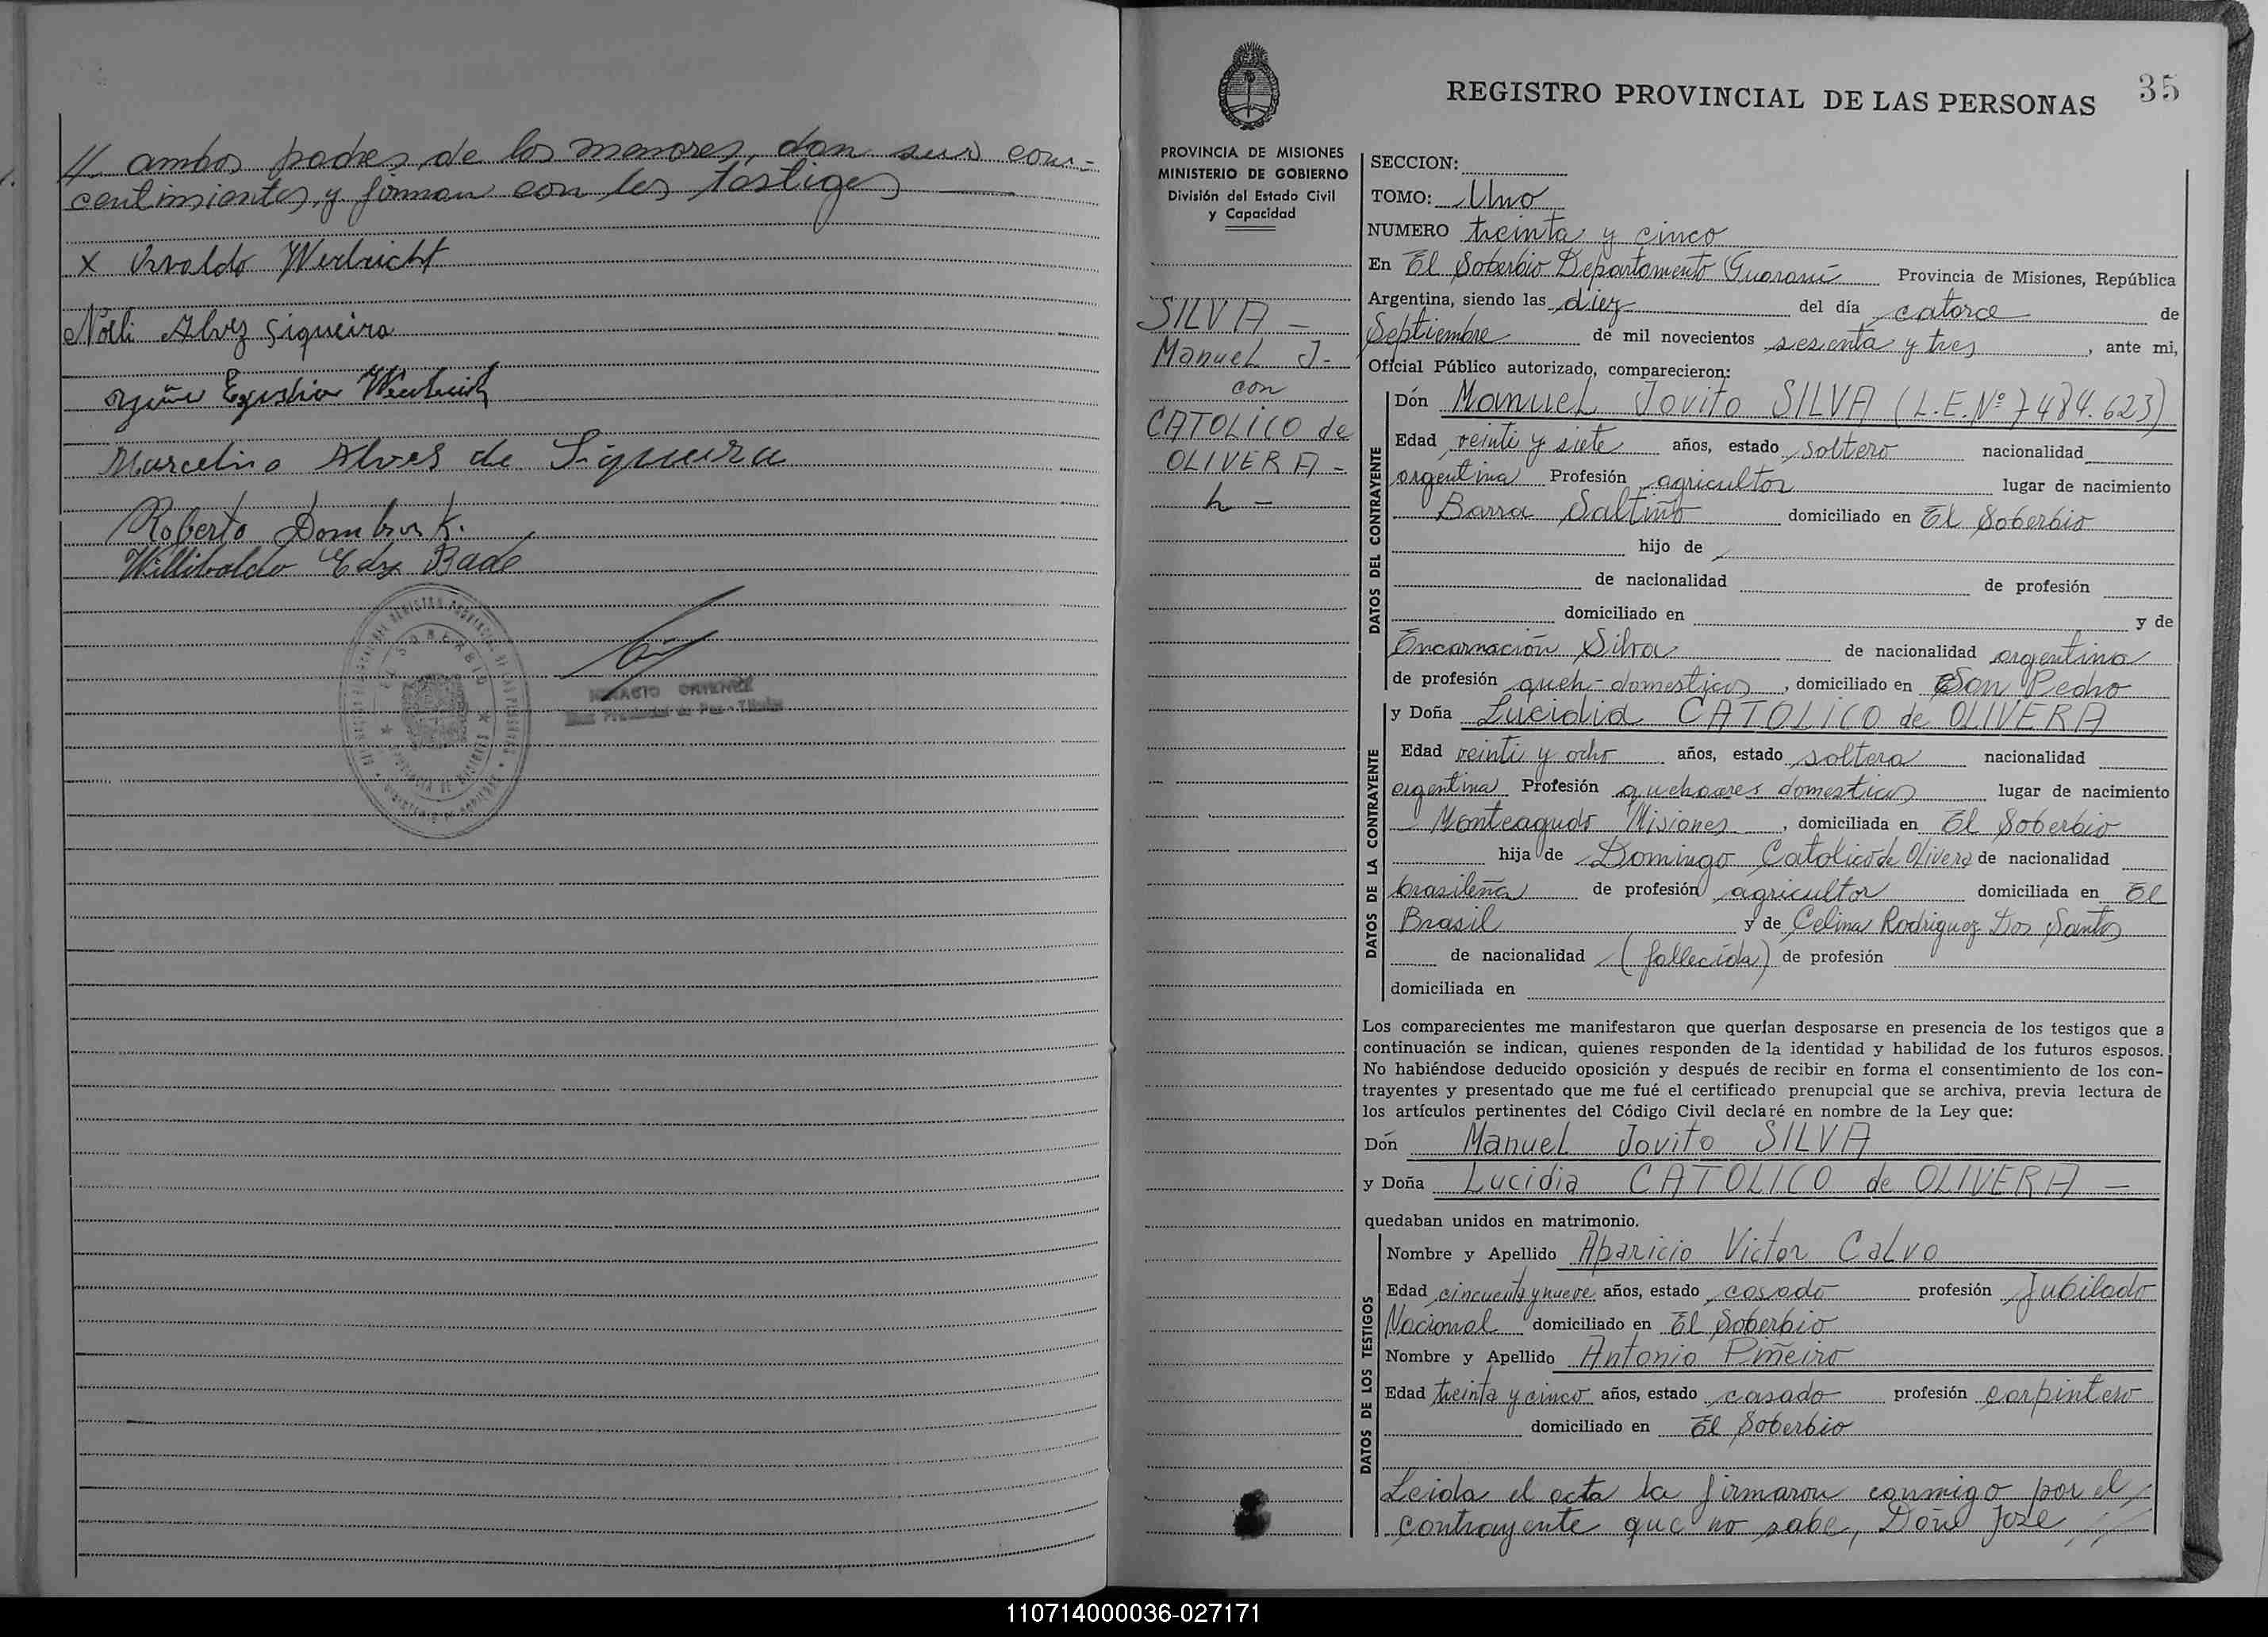 // ambos padres de los menores, dan sus con-
centimientos, y firman con los testigos
X Osvaldo Werbricht
Noeli Alvez Siqueira
Marcelino Alves de Siqueira
Roberto Dombrosk.
Willibaldo Edy Bade
35
REGISTRO PROVINCIAL DE LAS PERSONAS
PROVINCIA DE MISIONES
MINISTERIO DE GOBIERNO
División del Estado Civil
y Capacidad
SILVA -
Manuel J-
con
CATOLICO de
OLIVERA -
h -
SECCION:
TOMO: Uno
NUMERO treinta y cinco
En El Soberbio Departamento Guaraní Provincia de Misiones, República
Argentina, siendo las diez del día catorce de
Septiembre de mil novecientos sesenta y tres, ante mi,
Oficial Público autorizado, comparecieron:
DATOS DEL CONTRAYENTE
Dón Manuel Jovito SILVA (L.E. Nº 7484.623)
Edad veinti y siete años, estado soltero nacionalidad
argentina Profesión agricultor lugar de nacimiento
Barra Saltiño domiciliado en El Soberbio
hijo de
de nacionalidad de profesión
domiciliado en y de
Encarnación Silva de nacionalidad argentina
de profesión queh-domesticos, domiciliado en San Pedro
DATOS DE LA CONTRAYENTE
y Doña Lucidia CATOLICO de OLIVERA
Edad veinti y ocho años, estado soltera nacionalidad
argentina Profesión quehaceres domesticos lugar de nacimiento
Monteagudo Misiones, domiciliada en El Soberbio
hija de Domingo Catolico de Olivera de nacionalidad
brasileña de profesión agricultor domiciliada en El
Brasil y de Celina Rodriguez Dos Santos
de nacionalidad (fallecida) de profesión
domiciliada en
Los comparecientes me manifestaron que querían desposarse en presencia de los testigos que a
continuación se indican, quienes responden de la identidad y habilidad de los futuros esposos.
No habiéndose deducido oposición y después de recibir en forma el consentimiento de los con-
trayentes y presentado que me fué el certificado prenupcial que se archiva, previa lectura de
los artículos pertinentes del Código Civil declaré en nombre de la Ley que:
Dón Manuel Jovito SILVA
y Doña Lucidia CATOLICO de OLIVERA -
quedaban unidos en matrimonio.
DATOS DE LOS TESTIGOS
Nombre y Apellido Aparicio Victor Calvo
Edad cincuenta y nueve años, estado casado profesión Jubilado
Nacional domiciliado en El Soberbio
Nombre y Apellido Antonio Piñeiro
Edad treinta y cinco años, estado casado profesión carpintero
domiciliado en El Soberbio
Leida el acta la firmaron conmigo por el
contrayente que no sabe, Don José //
110714000036-027171